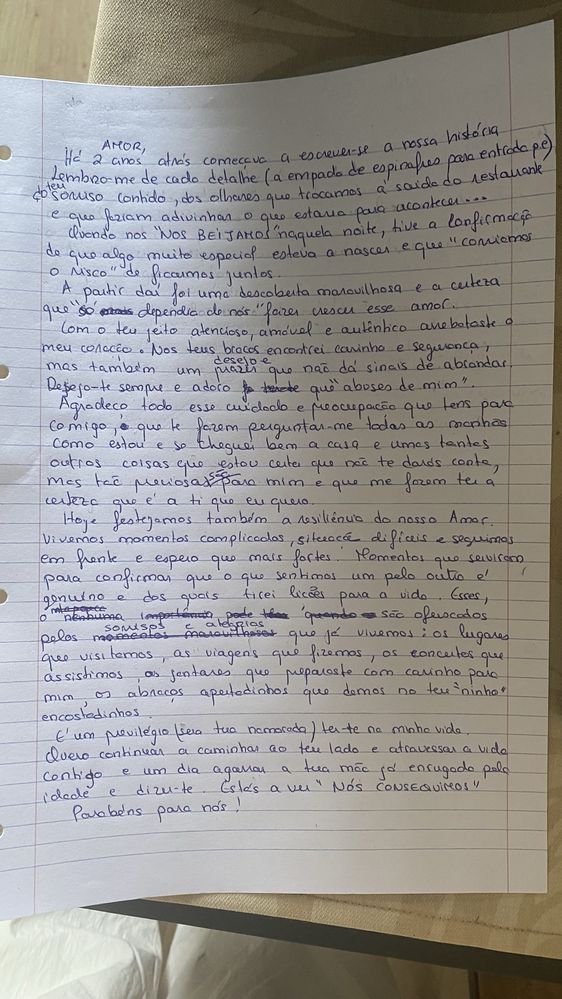 AMOR,
Há 2 anos atrás começava a escrever-se a nossa história
Lembro-me de cada detalhe (a empada de espinafres para entrada p.e)
do teu sorriso contido, dos olhares que trocamos à saída do restaurante
e que faziam adivinhar o que estaria para acontecer...
Quando nos "NOS BEIJAMOS" naquela noite, tive a confirmação
de que algo muito especial estava a nascer e que "corríamos
o risco" de ficarmos juntos.
A partir daí foi uma descoberta maravilhosa e a certeza
que "só dependia de nós" fazer crescer esse amor.
Com o teu jeito atencioso, amável e autêntico arrebataste o
meu coração. Nos teus braços encontrei carinho e segurança,
mas também um desejo e prazer que não dá sinais de abrandar.
Desejo-te sempre e adoro que "abuses de mim".
Agradeço todo esse cuidado e preocupação que tens para
comigo, e que te fazem perguntar-me todas as manhãs
como estou e se cheguei bem a casa e umas tantas
outras coisas que estou certa que não te darás conta,
mas tão preciosas são para mim e que me fazem ter a
certeza que é a ti que eu quero.
Hoje festejamos também a resiliência do nosso Amor.
Vivemos momentos complicados, situações difíceis e seguimos
em frente e espero que mais fortes. Momentos que serviram
para confirmar que o que sentimos um pelo outro é
genuíno e dos quais tirei lições para a vida. Esses,
são ofuscados
pelos sorisos alegrias que já vivemos: os lugares
que visitamos, as viagens que fizemos, os concertos que
assistimos, os jantares que preparaste com carinho para
mim, os abraços apertadinhos que damos no teu "ninho"
encostadinhos.
É um previlégio (ser a tua namorada) ter-te na minha vida.
Quero continuar a caminhar ao teu lado e atravessar a vida
contigo e um dia agarrar a tua mão já enrugada pela
idade e dizer-te. Estás a ver "NÓS CONSEGUIMOS"
Parabéns para nós!